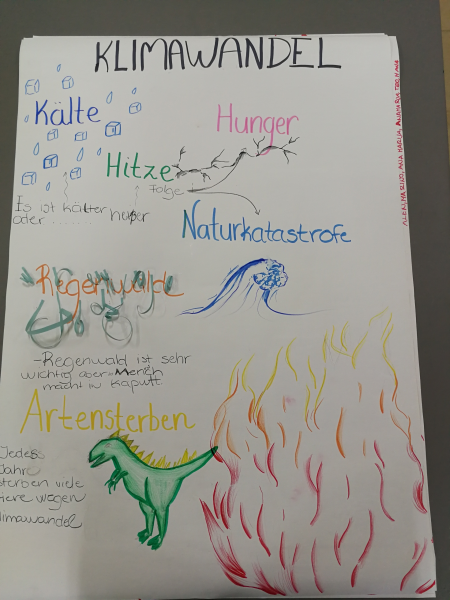 KLIMAWANDEL
Kälte
Hunger
Hitze
Folge
Es ist kälter
oder ........ heißer
Naturkatastrofe
Regenwälde
-Regenwald ist sehr
wichtig aber Mensch
macht in kaputt
Artensterben
Jedes
Jahre
sterben viele
tiere wegen
klimawandel